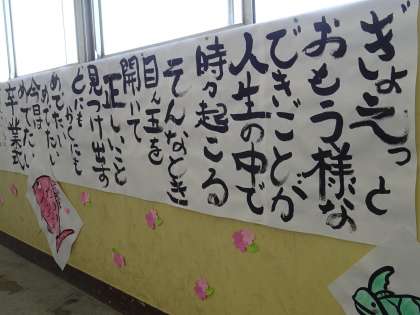 ぎょえっと
おもう様な
できごとが
人生の中で
時々起こる
そんなとき
目ん玉を
開いて
正しいこと
見つけ出す
とにも
かくにも
めでたい
めでたい
今日は
めでたい
卒業式